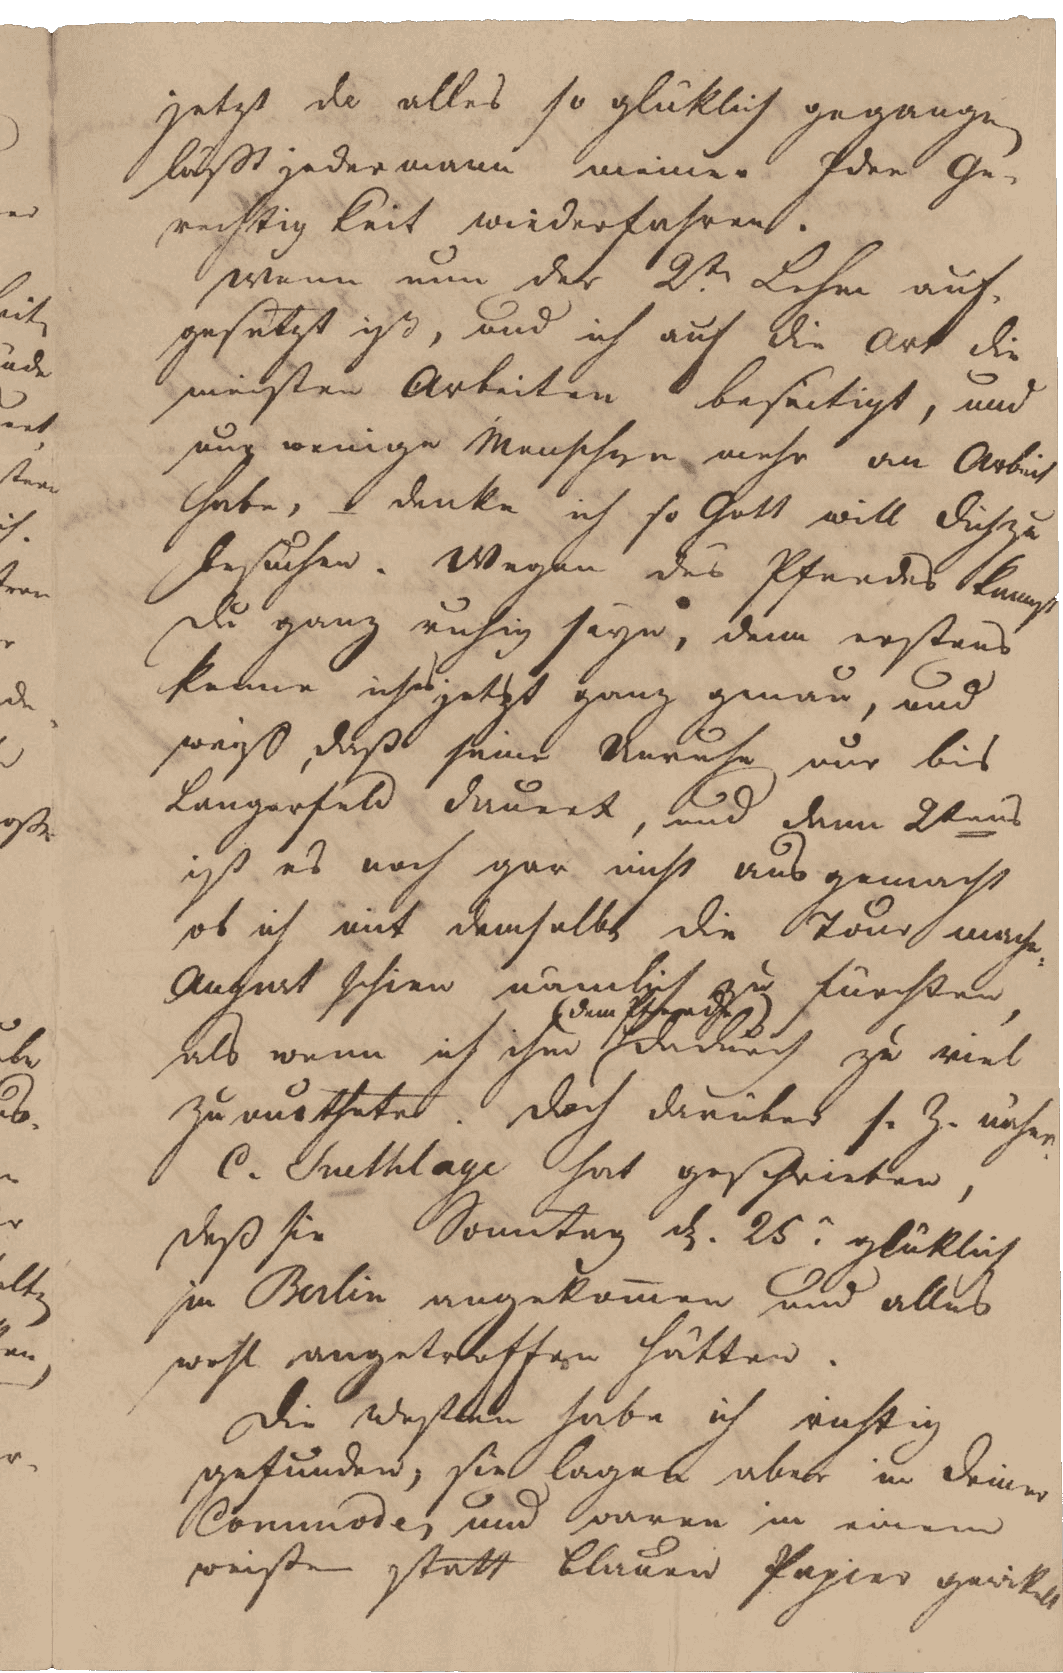 jetzt da alles so glüklich gegangen
läßt jedermann meiner Idee Ge-
rechtigkeit wiederfahren.
Wenn nun der 2te Lehm auf-
gesetzt ist, und ich auf die Art die
meisten Arbeiten beseitigt, und
nur wenige Menschen mehr an Arbeit
habe, denke ich so Gott will dich zu
besuchen. Wegen des Pferdes kannst
Du ganz ruhig seyn, denn erstens
kenne ich es jetzt ganz genau, und
weiß, daß seine Unruhe nur bis
Langerfeld dauert, und dann 2tens
ist es noch gar nicht ausgemacht
ob ich mit demselben die Tour mache.
August schien nämlich zu fürchten,
als wenn ich ihm (dem Pferde) dadurch zu viel
zumuthete. Doch darüber s. Z. näher.
C. Snethlage hat geschrieben,
daß sie Sonntag d. 25. glüklich
in Berlin angekom̄en und alles
wohl angetroffen hätten.
Die Westen habe ich richtig
gefunden, sie lagen aber in Deiner
Commode, und waren in einem
weißen statt blauen Papier gewikelt